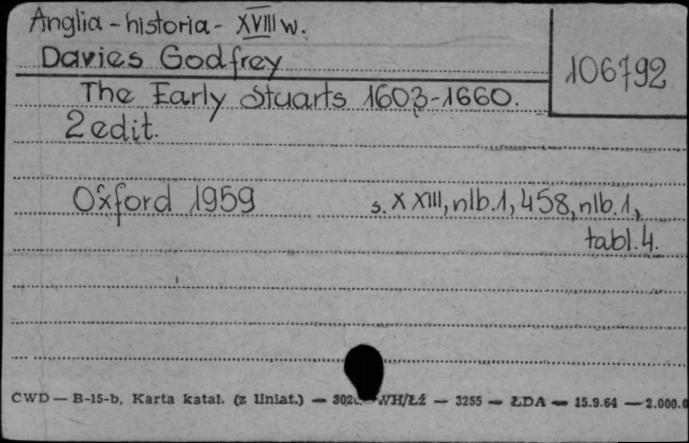 Anglia - historia - XVIII w.
Davies Godfrey
106792
The Early Stuarts 1603-1660.
2 edit.
Oxford 1959 s. XXIII, nlb. 1, 458, nlb. 1,
tabl. 4.
CWD — B-15-b, Karta katal. (z liniat.) — WH/Łź — 3255 — ŁDA — 15.9.64 — 2.000.0